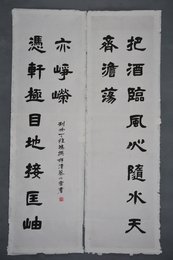 把酒臨風心隨水天
齊澹蕩
憑軒極目地接匡岫
亦崢嶸